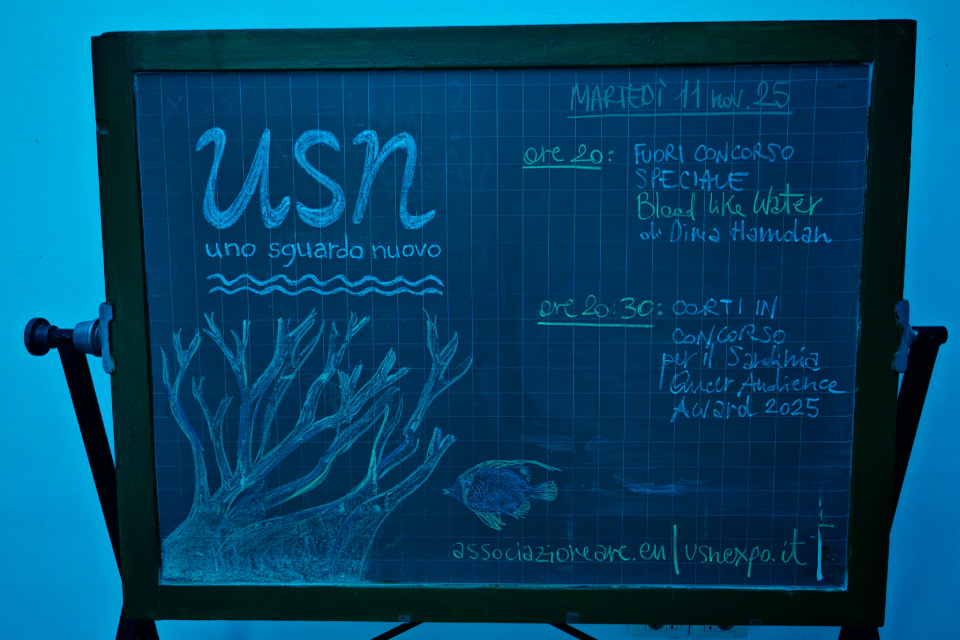 usn
uno sguardo nuovo
MARTEDÌ 11 nov. 25
ore 20:
FUORI CONCORSO
SPECIALE
Blood like Water
di Dima Hamdan
ore 20:30:
CORTI IN
CONCORSO
per il Sardinia
Queer Audience
Award 2025
associazionearc.eu | usnexpo.it